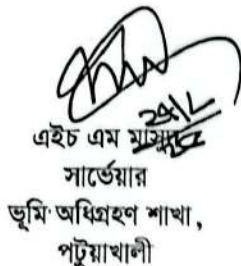 এইচ এম মাসুদ
সার্ভেয়ার
ভূমি অধিগ্রহণ শাখা,
পটুয়াখালী